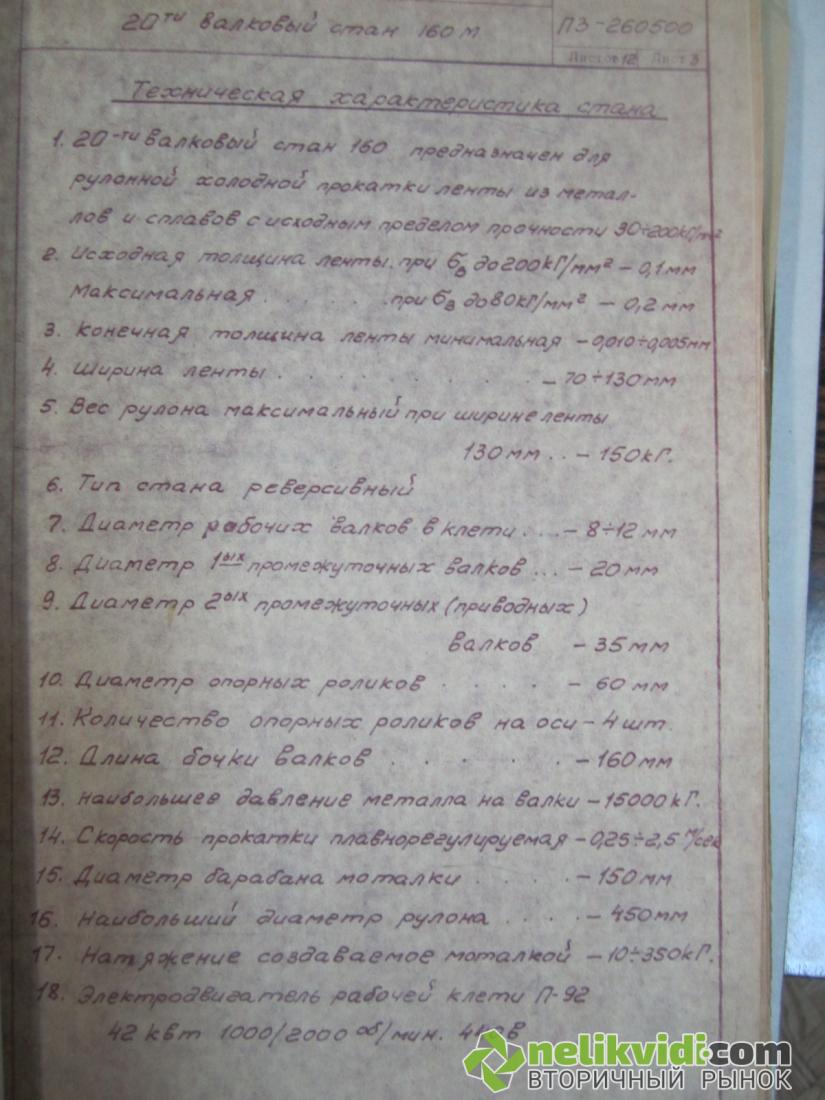 20ти валковый стан 160 м
ПЗ-260500
Листов 12 Лист 3
Техническая характеристика стана
1. 20-ти валковый стан 160 предназначен для
рулонной холодной прокатки ленты из метал-
лов и сплавов с исходным пределом прочности 30÷200кГ/м²
2. Исходная толщина ленты. при бв до 200кГ/мм² - 0,1 мм
максимальная . . . . . . при бв до 80кГ/мм² - 0,2 мм
3. Конечная толщина ленты минимальная - 0,010÷0,005мм
4. Ширина ленты . . . . . . . . . - 70÷130мм
5. Вес рулона максимальный при ширине ленты
130 мм . . - 150кГ.
6. Тип стана реверсивный
7. Диаметр рабочих валков в клети . . . - 8÷12 мм
8. Диаметр 1ых промежуточных валков . . . - 20мм
9. Диаметр 2ых промежуточных (приводных)
валков - 35 мм
10. Диаметр опорных роликов . . . . - 60 мм
11. Количество опорных роликов на оси - 4 шт.
12. Длина бочки валков . . . . . - 160мм
13. Наибольшее давление металла на валки - 15000 кГ.
14. Скорость прокатки плавнорегулируемая - 0,25÷2,5 м/сек
15. Диаметр барабана моталки . . . . - 150мм
16. Наибольший диаметр рулона . . . . - 450мм
17. Натяжение создаваемое моталкой - 10÷350кГ.
18. Электродвигатель рабочей клети П-92
42 квт 1000/2000 об/мин.
nelikvidi.com
ВТОРИЧНЫЙ РЫНОК